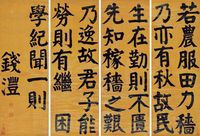 若農服田力穡
乃亦有秋故民
生在勤則不匱
先知稼穡之艱
乃逸故君子能
勞則有繼 困
學紀聞一則
錢灃